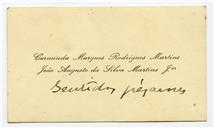 Carminda Marques Rodrigues Martins
João Augusto da Silva Martins Jor
Sentidos pêzames